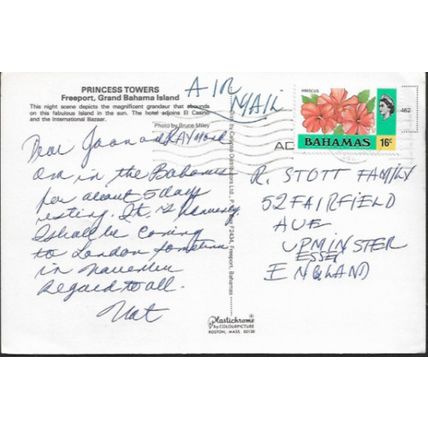 PRINCESS TOWERS
Freeport, Grand Bahama Island
This night scene depicts the magnificent grandeur that abounds
on this fabulous island in the sun. The hotel adjoins El Casino
and the International Bazaar.
Photo by Bruce Miley
AIR
MAIL
HIBISCUS
BAHAMAS 16c
462
AD
Dear Joan and RAYMOND
Am in the Bahamas
for about 5 days
resting. It is heavenly
I shall be coming
to London sometime
in November
Regards to all.
Nat
R. STOTT FAMILY
52 FAIRFIELD
AUE
UPMINSTER
ESSEX
ENGLAND
Freeport, Bahamas
Plastichrome
by COLOURPICTURE
BOSTON, MASS. 02130